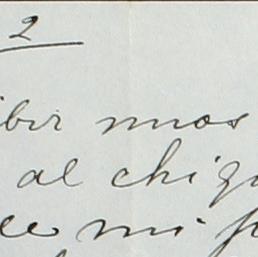 2
ibir unos
al chiq
mi